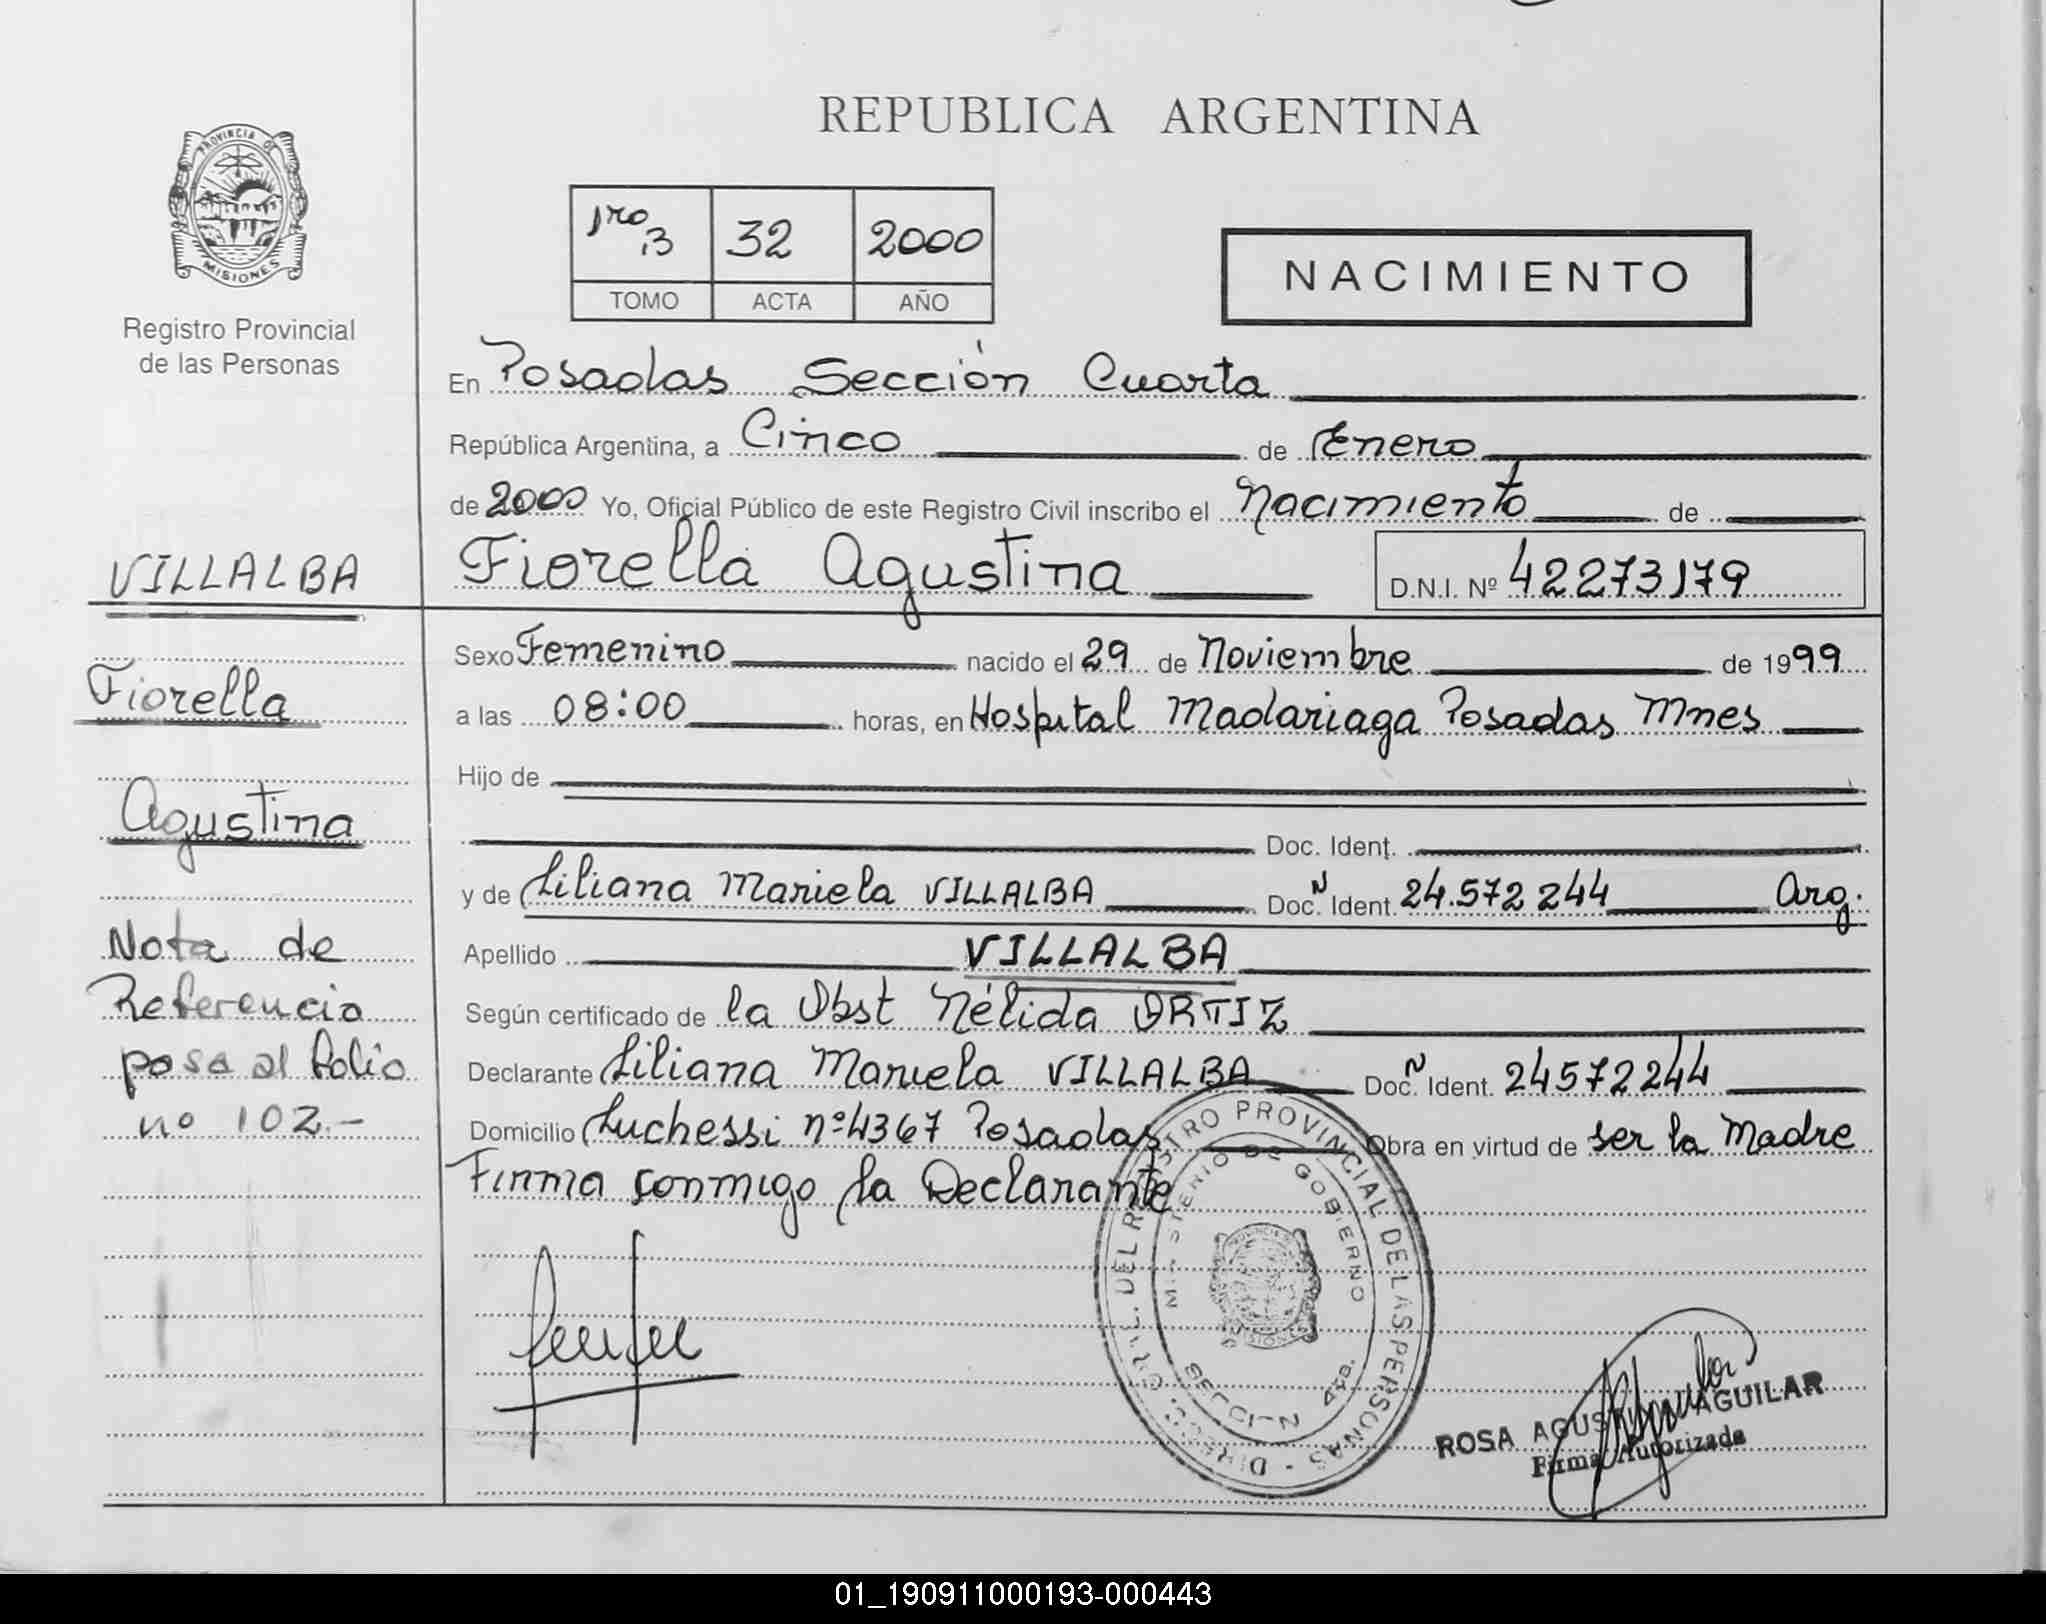 REPUBLICA ARGENTINA
PROVINCIA DE
MISIONES
Registro Provincial
de las Personas
1ro 3 32 2000
TOMO ACTA AÑO
NACIMIENTO
En Posadas Sección Cuarta
República Argentina, a Cinco de Enero
de 2000 Yo, Oficial Público de este Registro Civil inscribo el Nacimiento de
VILLALBA
Fiorella Agustina D.N.I. Nº 42273179
Sexo Femenino nacido el 29 de Noviembre de 1999
Fiorella
a las 08:00 horas, en Hospital Madariaga Posadas Mnes
Hijo de
Agustina
Doc. Ident.
y de Liliana Mariela VILLALBA Doc. N Ident. 24.572 244 Arg.
Nota de
Apellido VILLALBA
Referencia
Según certificado de la Obst Nélida ORTIZ
pasa al folio
Declarante Liliana Mariela VILLALBA Doc. N Ident. 24572244
nº 102.-
Domicilio Luchessi nº 4367 Posadas Obra en virtud de ser la Madre
Firma conmigo la Declarante
DIRECC. GRAL. DEL REGISTRO PROVINCIAL DE LAS PERSONAS
MINISTERIO DE GOBIERNO
SECCION 4ta.
ROSA AGUSTINA AGUILAR
Firma Autorizada
01_190911000193-000443